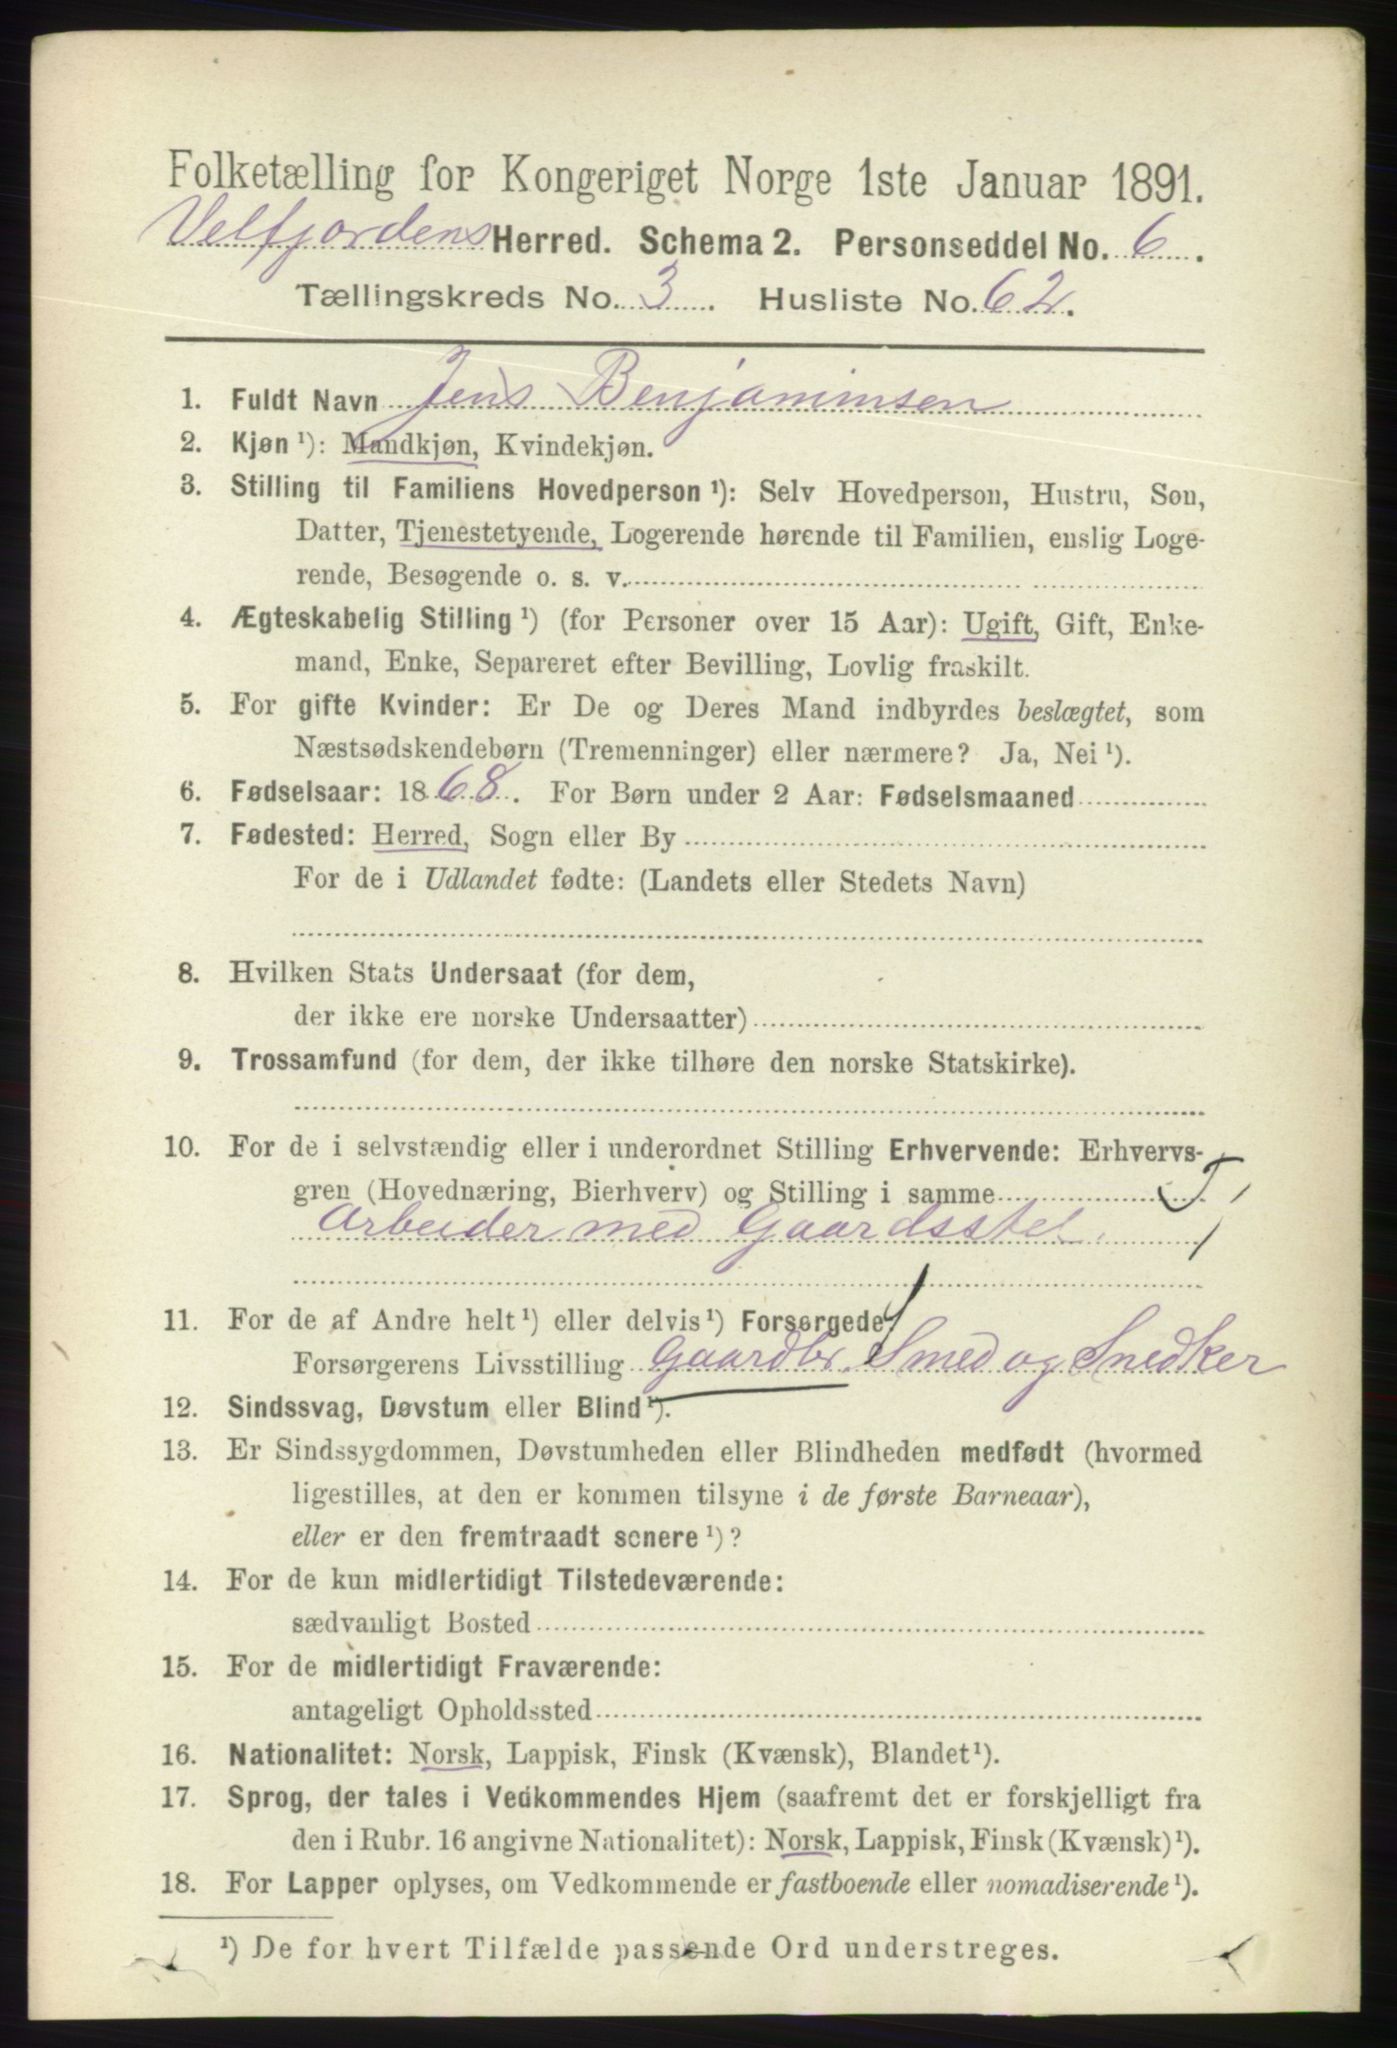 Folketælling for Kongeriget Norge 1ste Januar 1891.
Velfjordens Herred. Schema 2. Personseddel No. 6.
Tællingskreds No. 3. Husliste No. 62.
1. Fuldt Navn Jens Benjaminsen
2. Kjøn ¹): Mandkjøn, Kvindekjøn.
3. Stilling til Familiens Hovedperson ¹): Selv Hovedperson, Hustru, Søn,
Datter, Tjenestetyende, Logerende hørende til Familien, enslig Loge-
rende, Besøgende o. s. v.
4. Ægteskabelig Stilling ¹) (for Personer over 15 Aar): Ugift, Gift, Enke-
mand, Enke, Separeret efter Bevilling, Lovlig fraskilt.
5. For gifte Kvinder: Er De og Deres Mand indbyrdes beslægtet, som
Næstsødskendebørn (Tremenninger) eller nærmere? Ja, Nei ¹).
6. Fødselsaar: 1868. For Børn under 2 Aar: Fødselsmaaned
7. Fødested: Herred, Sogn eller By
For de i Udlandet fødte: (Landets eller Stedets Navn)
8. Hvilken Stats Undersaat (for dem,
der ikke ere norske Undersaatter)
9. Trossamfund (for dem, der ikke tilhøre den norske Statskirke).
10. For de i selvstændig eller i underordnet Stilling Erhvervende: Erhvervs-
gren (Hovednæring, Bierhverv) og Stilling i samme
Arbeider med Gaardsstel.
11. For de af Andre helt ¹) eller delvis ¹) Forsørgede:
Forsørgerens Livsstilling Gaardbr. Smed og Snedker
12. Sindssvag, Døvstum eller Blind ¹).
13. Er Sindssygdommen, Døvstumheden eller Blindheden medfødt (hvormed
ligestilles, at den er kommen tilsyne i de første Barneaar),
eller er den fremtraadt senere ¹)?
14. For de kun midlertidigt Tilstedeværende:
sædvanligt Bosted
15. For de midlertidigt Fraværende:
antageligt Opholdssted
16. Nationalitet: Norsk, Lappisk, Finsk (Kvænsk), Blandet ¹).
17. Sprog, der tales i Vedkommendes Hjem (saafremt det er forskjelligt fra
den i Rubr. 16 angivne Nationalitet): Norsk, Lappisk, Finsk (Kvænsk) ¹).
18. For Lapper oplyses, om Vedkommende er fastboende eller nomadiserende ¹).
¹) De for hvert Tilfælde passende Ord understreges.